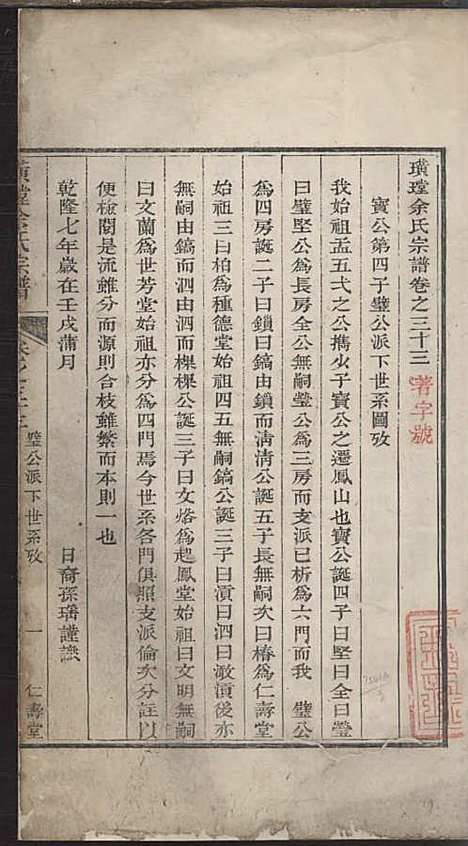 璜瑝余氏宗譜卷之三十三 著字號
寳公第四子璧公派下世系圖攷
我始祖孟五弍之公携少子寳公之遷鳳山也寳公誕四子曰堅曰全曰瑩
曰璧堅公為長房全公無嗣瑩公為三房而支派已析為六門而我 璧公
為四房誕二子曰鎖曰鎬由鎖而清清公誕五子長無嗣次曰椿為仁壽堂
始祖三曰柏為種德堂始祖四五無嗣鎬公誕三子曰瀆曰泗曰澉瀆後亦
無嗣由鎬而泗由泗而樑樑公誕三子曰文熖為起鳳堂始祖曰文明無嗣
曰文蘭為世芳堂始祖亦分為四門焉今世系各門俱照支派倫次分註以
便檢閱是流雖分而源則合枝雖繁而本則一也
乾隆七年歲在壬戌蒲月 日裔孫瑀謹識
璧公派下世系攷 一 仁壽堂